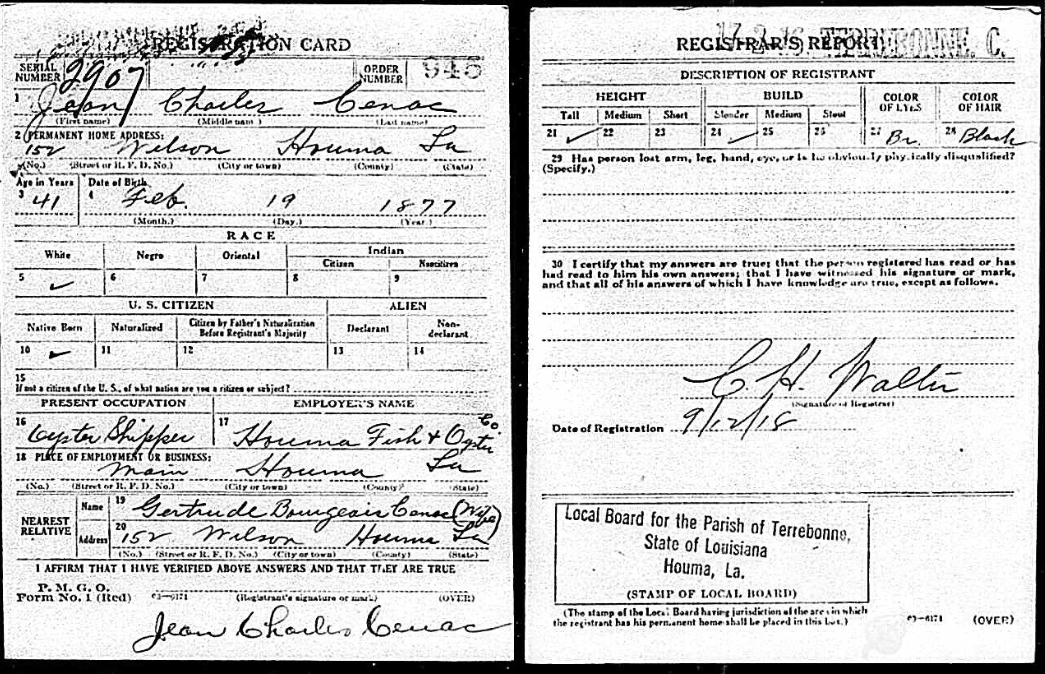 REGISTRATION CARD
SERIAL NUMBER 2907
ORDER NUMBER 945
1 Jean Charles Cenac
(First name) (Middle name) (Last name)
2 PERMANENT HOME ADDRESS:
152 Wilson Houma La
(No.) (Street or R. F. D. No.) (City or town) (County) (State)
Age in Years Date of Birth
3 41 4 Feb. 19 1877
(Month.) (Day.) (Year.)
RACE
White Negro Oriental Indian
Citizen Noncitizen
5 ✓ 6 7 8 9
U. S. CITIZEN ALIEN
Native Born Naturalized Citizen by Father's Naturalization Before Registrant's Majority Declarant Non-declarant
10 ✓ 11 12 13 14
15
If not a citizen of the U. S., of what nation are you a citizen or subject?
PRESENT OCCUPATION EMPLOYER'S NAME
16 Oyster Shipper 17 Houma Fish & Oyster Co.
18 PLACE OF EMPLOYMENT OR BUSINESS:
Main Houma La
(No.) (Street or R. F. D. No.) (City or town) (County) (State)
NEAREST RELATIVE
Name 19 Gertrude Bourgeois Cenac (Wife)
Address 20 152 Wilson Houma La
(No.) (Street or R. F. D. No.) (City or town) (County) (State)
I AFFIRM THAT I HAVE VERIFIED ABOVE ANSWERS AND THAT THEY ARE TRUE
P. M. G. O.
Form No. 1 (Red) 03—6171 (Registrant's signature or mark) (OVER)
Jean Charles Cenac
REGISTRAR'S REPORT
TERREBONNE. C.
DESCRIPTION OF REGISTRANT
HEIGHT BUILD COLOR OF EYES COLOR OF HAIR
Tall Medium Short Slender Medium Stout
21 ✓ 22 23 24 ✓ 25 26 27 Br. 28 Black
29 Has person lost arm, leg, hand, eye, or is he obviously physically disqualified?
(Specify.)
30 I certify that my answers are true; that the person registered has read or has
had read to him his own answers; that I have witnessed his signature or mark,
and that all of his answers of which I have knowledge are true, except as follows.
C. H. Walter
(Signature of Registrar)
Date of Registration 9/12/18
Local Board for the Parish of Terrebonne,
State of Louisiana
Houma, La.
(STAMP OF LOCAL BOARD)
(The stamp of the Local Board having jurisdiction of the area in which
the registrant has his permanent home shall be placed in this box.)
03—6171 (OVER)